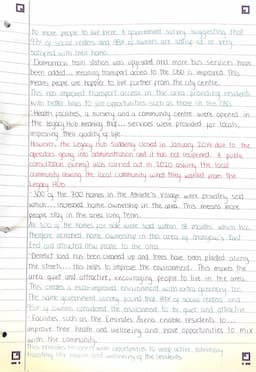 to more people to live there. A government survey suggesting that
93% of social renters and 98% of owners are satisfied or very
satisfied with their home.
· Dalmarnock train station was upgraded and more bus services have
been added... meaning transport access to the CBD is improved. This
means people are happier to live further from the city centre.
This has improved transport access in the area, providing residents
with better links to job opportunities such as those in the CBD.
· Health facilities, a nursery and a community centre were opened in
the Legacy Hub meaning that... services were provided for locals,
improving their quality of life.
However, the Legacy Hub suddenly closed in January 2019 due to the
operators going into administration and it has not reopened. A public
consultation (survey) was carried out in 2020 asking the local
community asking the local community what they wanted from the
Legacy Hub.
· 300 of the 700 homes in the Athlete's Village were privately sold
which... increased home ownership in the area. This means more
people stay in the area long term.
All 300 of the homes for sale were sold within 18 months which has
therefore increased home ownership in this area of Glasgow's East
End and attracted new people to the area.
· Derelict land has been cleaned up and trees have been planted along
the streets... this helps to improve the environment. This makes the
area quiet and attractive, encouraging people to live in the area.
This creates a more improved environment with extra greenery too.
The same government survey found that 89% of social renters and
of owners considered the environment to be quiet and attractive.
· Facilities such as the Emirates Arena enable residents to...
improve their health and wellbeing and have opportunities to mix
with the community.
This provides residents with opportunities to keep active,
the health and wellbeing of the residents.